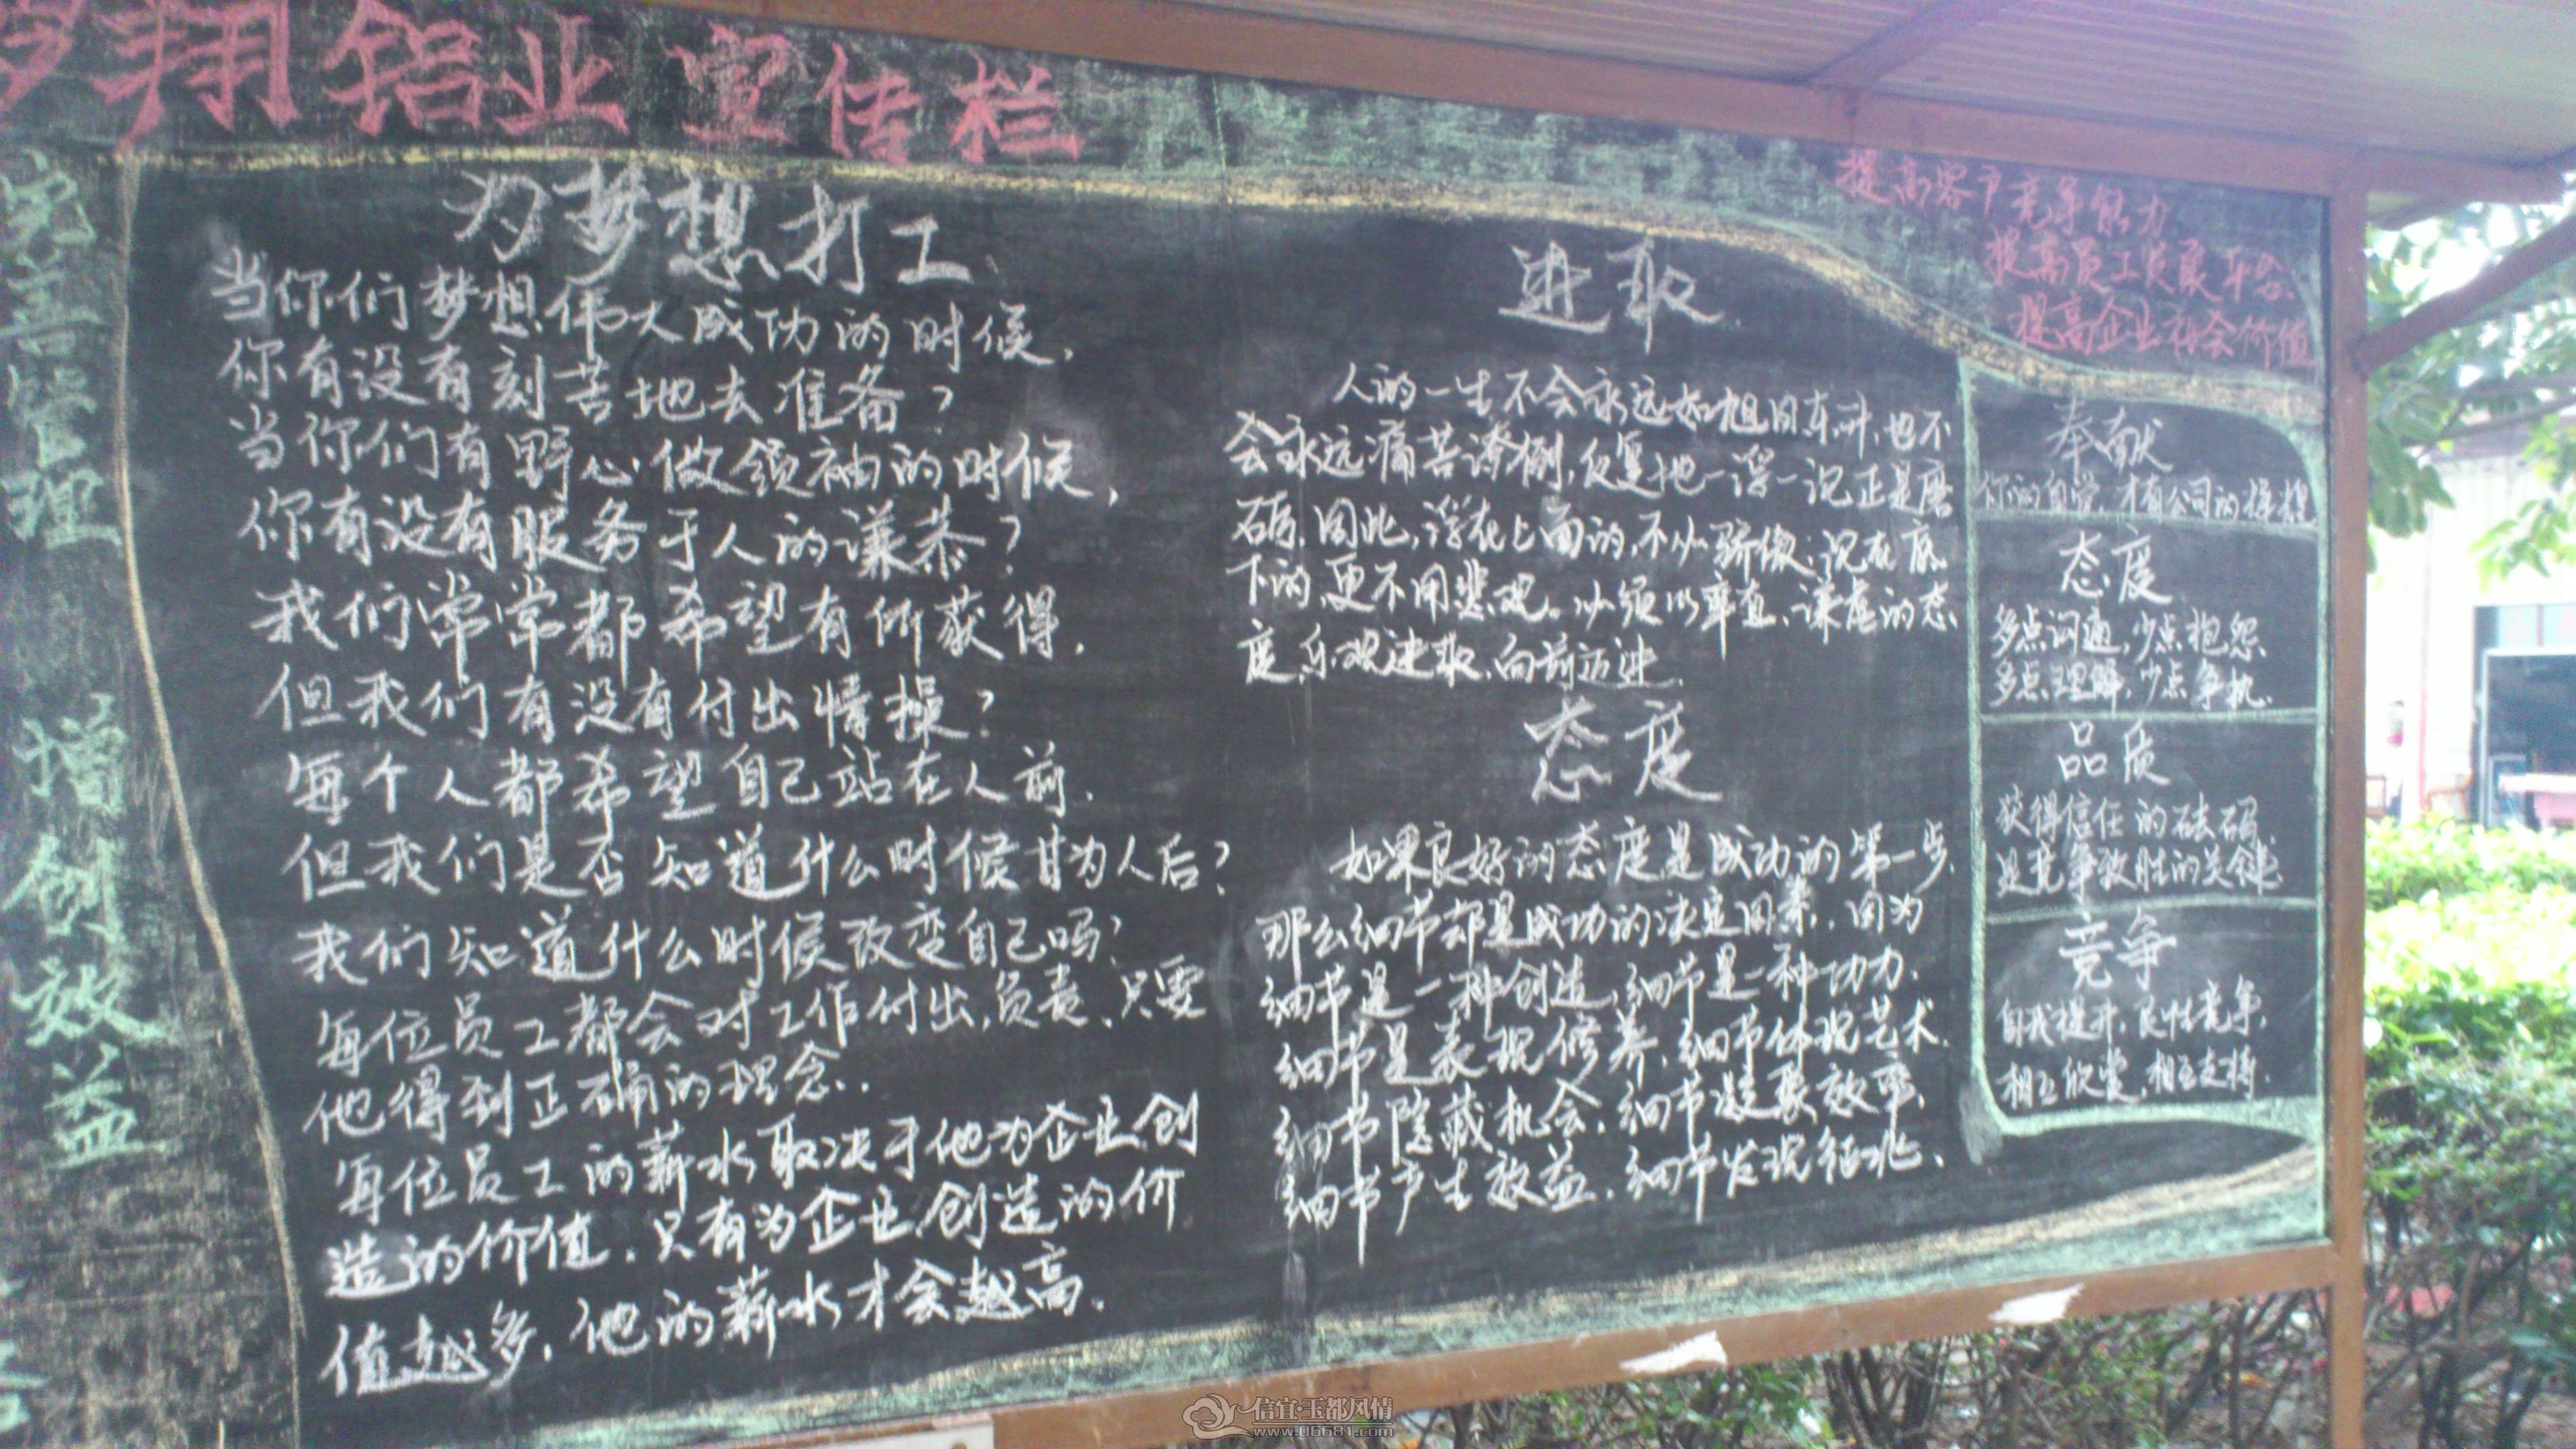 翔铝业宣传栏
完善管理
增创效益
为梦想打工
当你们梦想伟大成功的时候,
你有没有刻苦地去准备?
当你们有野心做领袖的时候,
你有没有服务于人的谦恭?
我们常常都希望有所获得,
但我们有没有付出情操?
每个人都希望自己站在人前.
但我们是否知道什么时候甘为人后?
我们知道什么时候改变自己吗?
每位员工都会对工作付出,负责、只要
他得到正确的理念..
每位员工的薪水取决于他为企业创
造的价值.只有为企业创造的价
值越多,他的薪水才会越高.
进取
人的一生不会永远如旭日东升,也不
会永远痛苦潦倒,反复地一浮一沉正是磨
砺.因此,浮在上面的,不必骄傲;沉在底
下的,更不用悲观。必须以率直、谦虚的态
度,乐观进取,向前迈进.
态度
如果良好的态度是成功的第一步.
那么细节却是成功的决定因素.因为
细节是一种创造,细节是一种功力.
细节是表现修养,细节体现艺术.
细节隐藏机会,细节凝聚效率.
细节产生效益.细节发现征兆.
提高客户竞争能力
提高员工发展平台.
提高企业社会价值
奉献
你的自觉,才有公司的辉煌
态度
多点沟通,少点抱怨.
多点理解,少点争执.
品质
获得信任的砝码.
是竞争致胜的关键.
竞争
自我提升,良性竞争,
相互欣赏,相互支持.
信宜·玉都风情
www.06681.com